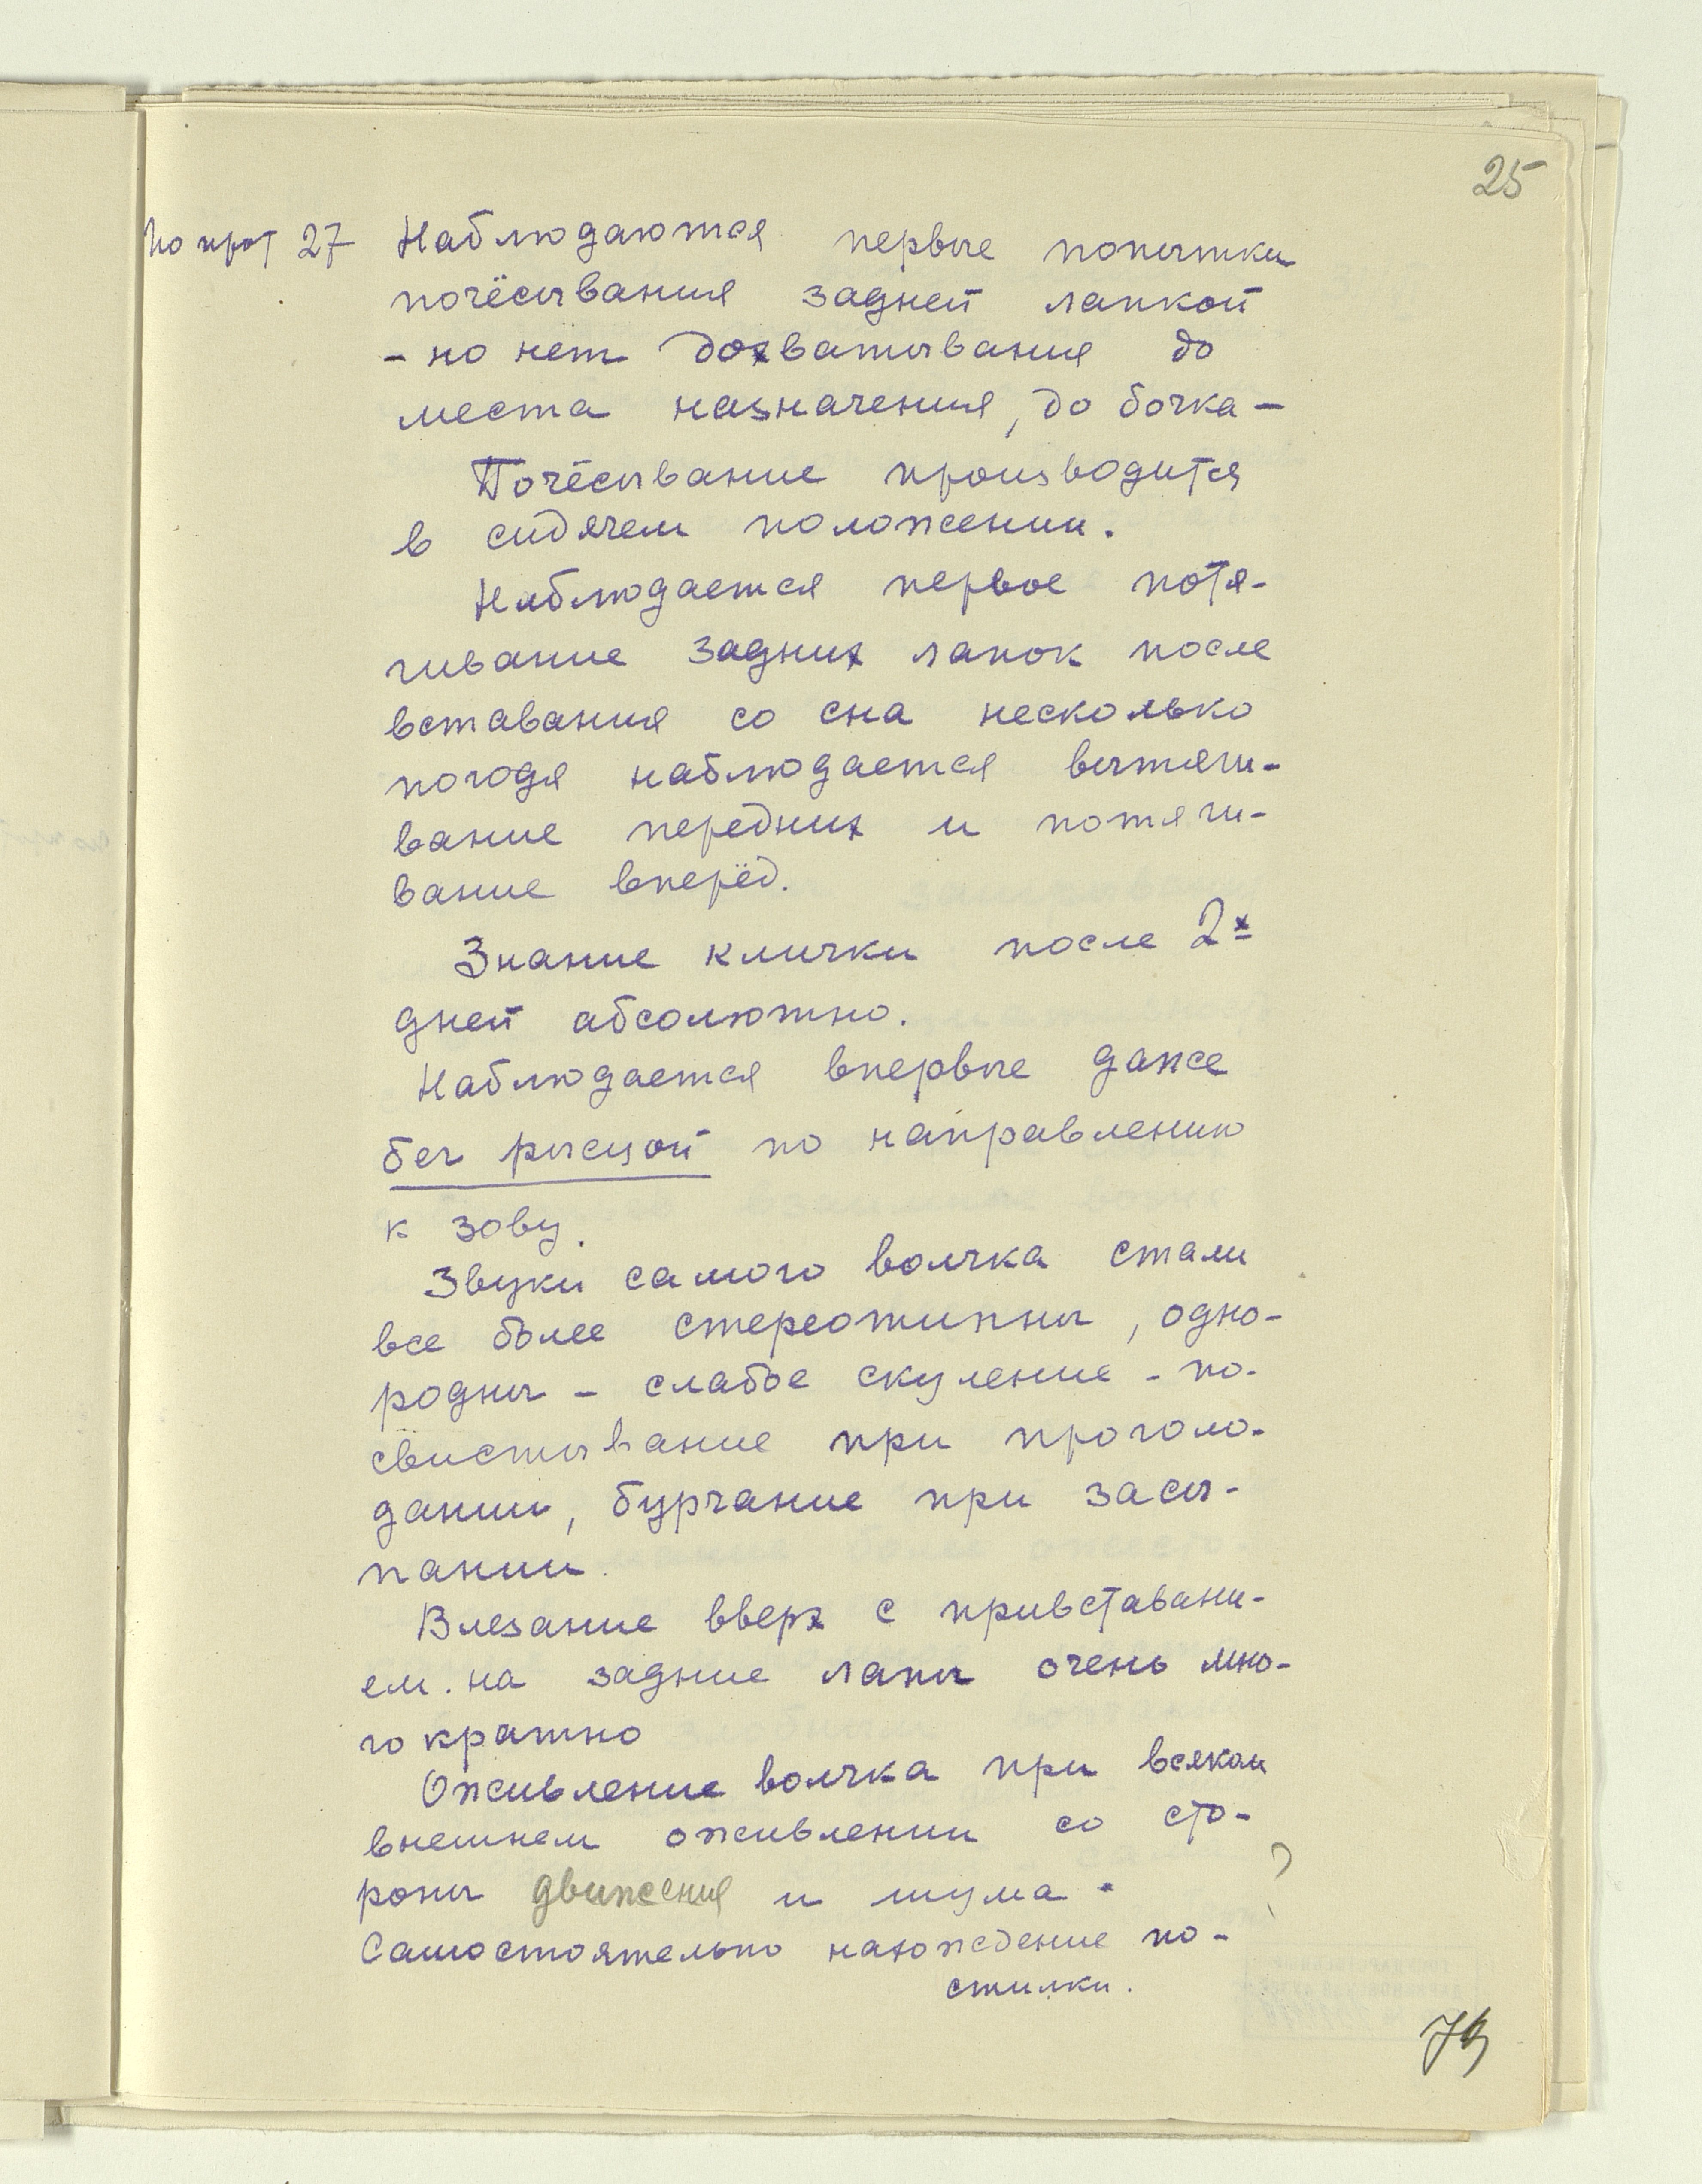 25
По прот 27 Наблюдаются первые попытки
почёсывания задней лапкой
- но нет дохватывания до
места назначения, до бочка -
Почёсывание производится
в сидячем положении.
Наблюдается первое потя-
гивание задних лапок после
вставания со сна несколько
погодя наблюдается вытяги-
вание передних и потяги-
вание вперёд.
Знание клички после 2х
дней абсолютно.
Наблюдается впервые даже
бег рысцой по направлению
к зову.
Звуки самого волчка стали
все более стереотипны, одно-
родны - слабое скуление - по-
свистывание при проголо-
дании, бурчание при засы-
пании.
Влезание вверх с привставани-
ем на задние лапы очень мно-
го кратно
Оживление волчка при всяком
внешнем оживлении со сто-
роны движения и шума.
Самостоятельно нахождение по-
стилки.